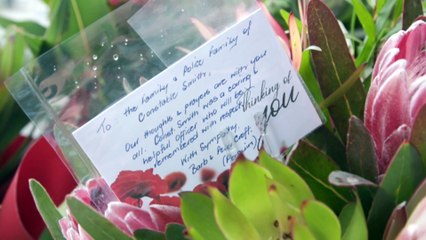 To the Family & Police Family of
Constable Smith,
Our thoughts & prayers are with you
all. Const. Smith was a caring &
helpful officer who will be
remembered with respect.
With Sympathy,
Barb & Perry
Thinking of
YOU